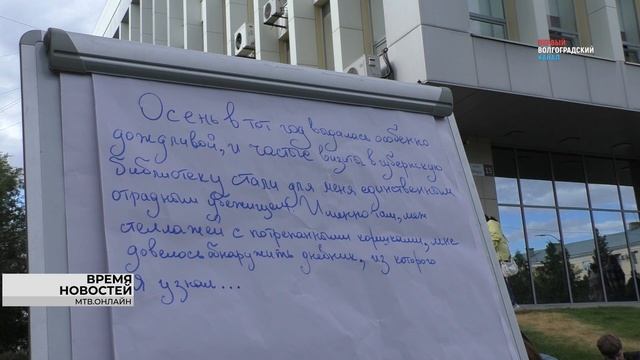 ПЕРВЫЙ
ВОЛГОГРАДСКИЙ
КАНАЛ
Осень в тот год выдалась особенно
дождливой, и частые визиты в губернскую
библиотеку стали для меня единственным
отрадным убежищем. Именно там, меж
стеллажей с потрепанными корешками, мне
довелось обнаружить дневник, из которого
я узнал...
ВРЕМЯ
НОВОСТЕЙ
МТВ.ОНЛАЙН